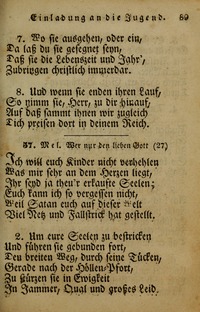 Einladung an die Jugend. 89
7. Wo sie ausgehen, oder ein,
Da laß du sie gesegnet seyn,
Daß sie die Lebenszeit und Jahr',
Zubringen christlich immerdar.
8. Und wenn sie enden ihren Lauf,
So nimm sie, Herr, zu dir hinauf,
Auf daß sammt ihnen wir zugleich
Dich preisen dort in deinem Reich.
57. Mel. Wer nur den lieben Gott (27)
Ich will euch Kinder nicht verhehlen
Was mir sehr an dem Herzen liegt,
Ihr seyd ja theu'r erkaufte Seelen;
Euch kann ich so vergessen nicht,
Weil Satan euch auf dieser Welt
Viel Netz und Fallstrick hat gestellt.
2. Um eure Seelen zu bestricken
Und führen sie gebunden fort,
Den breiten Weg, durch seine Tücken,
Gerade nach der Höllen-Pfort,
Zu stürzen sie in Ewigkeit
In Jammer, Qual und großes Leid.